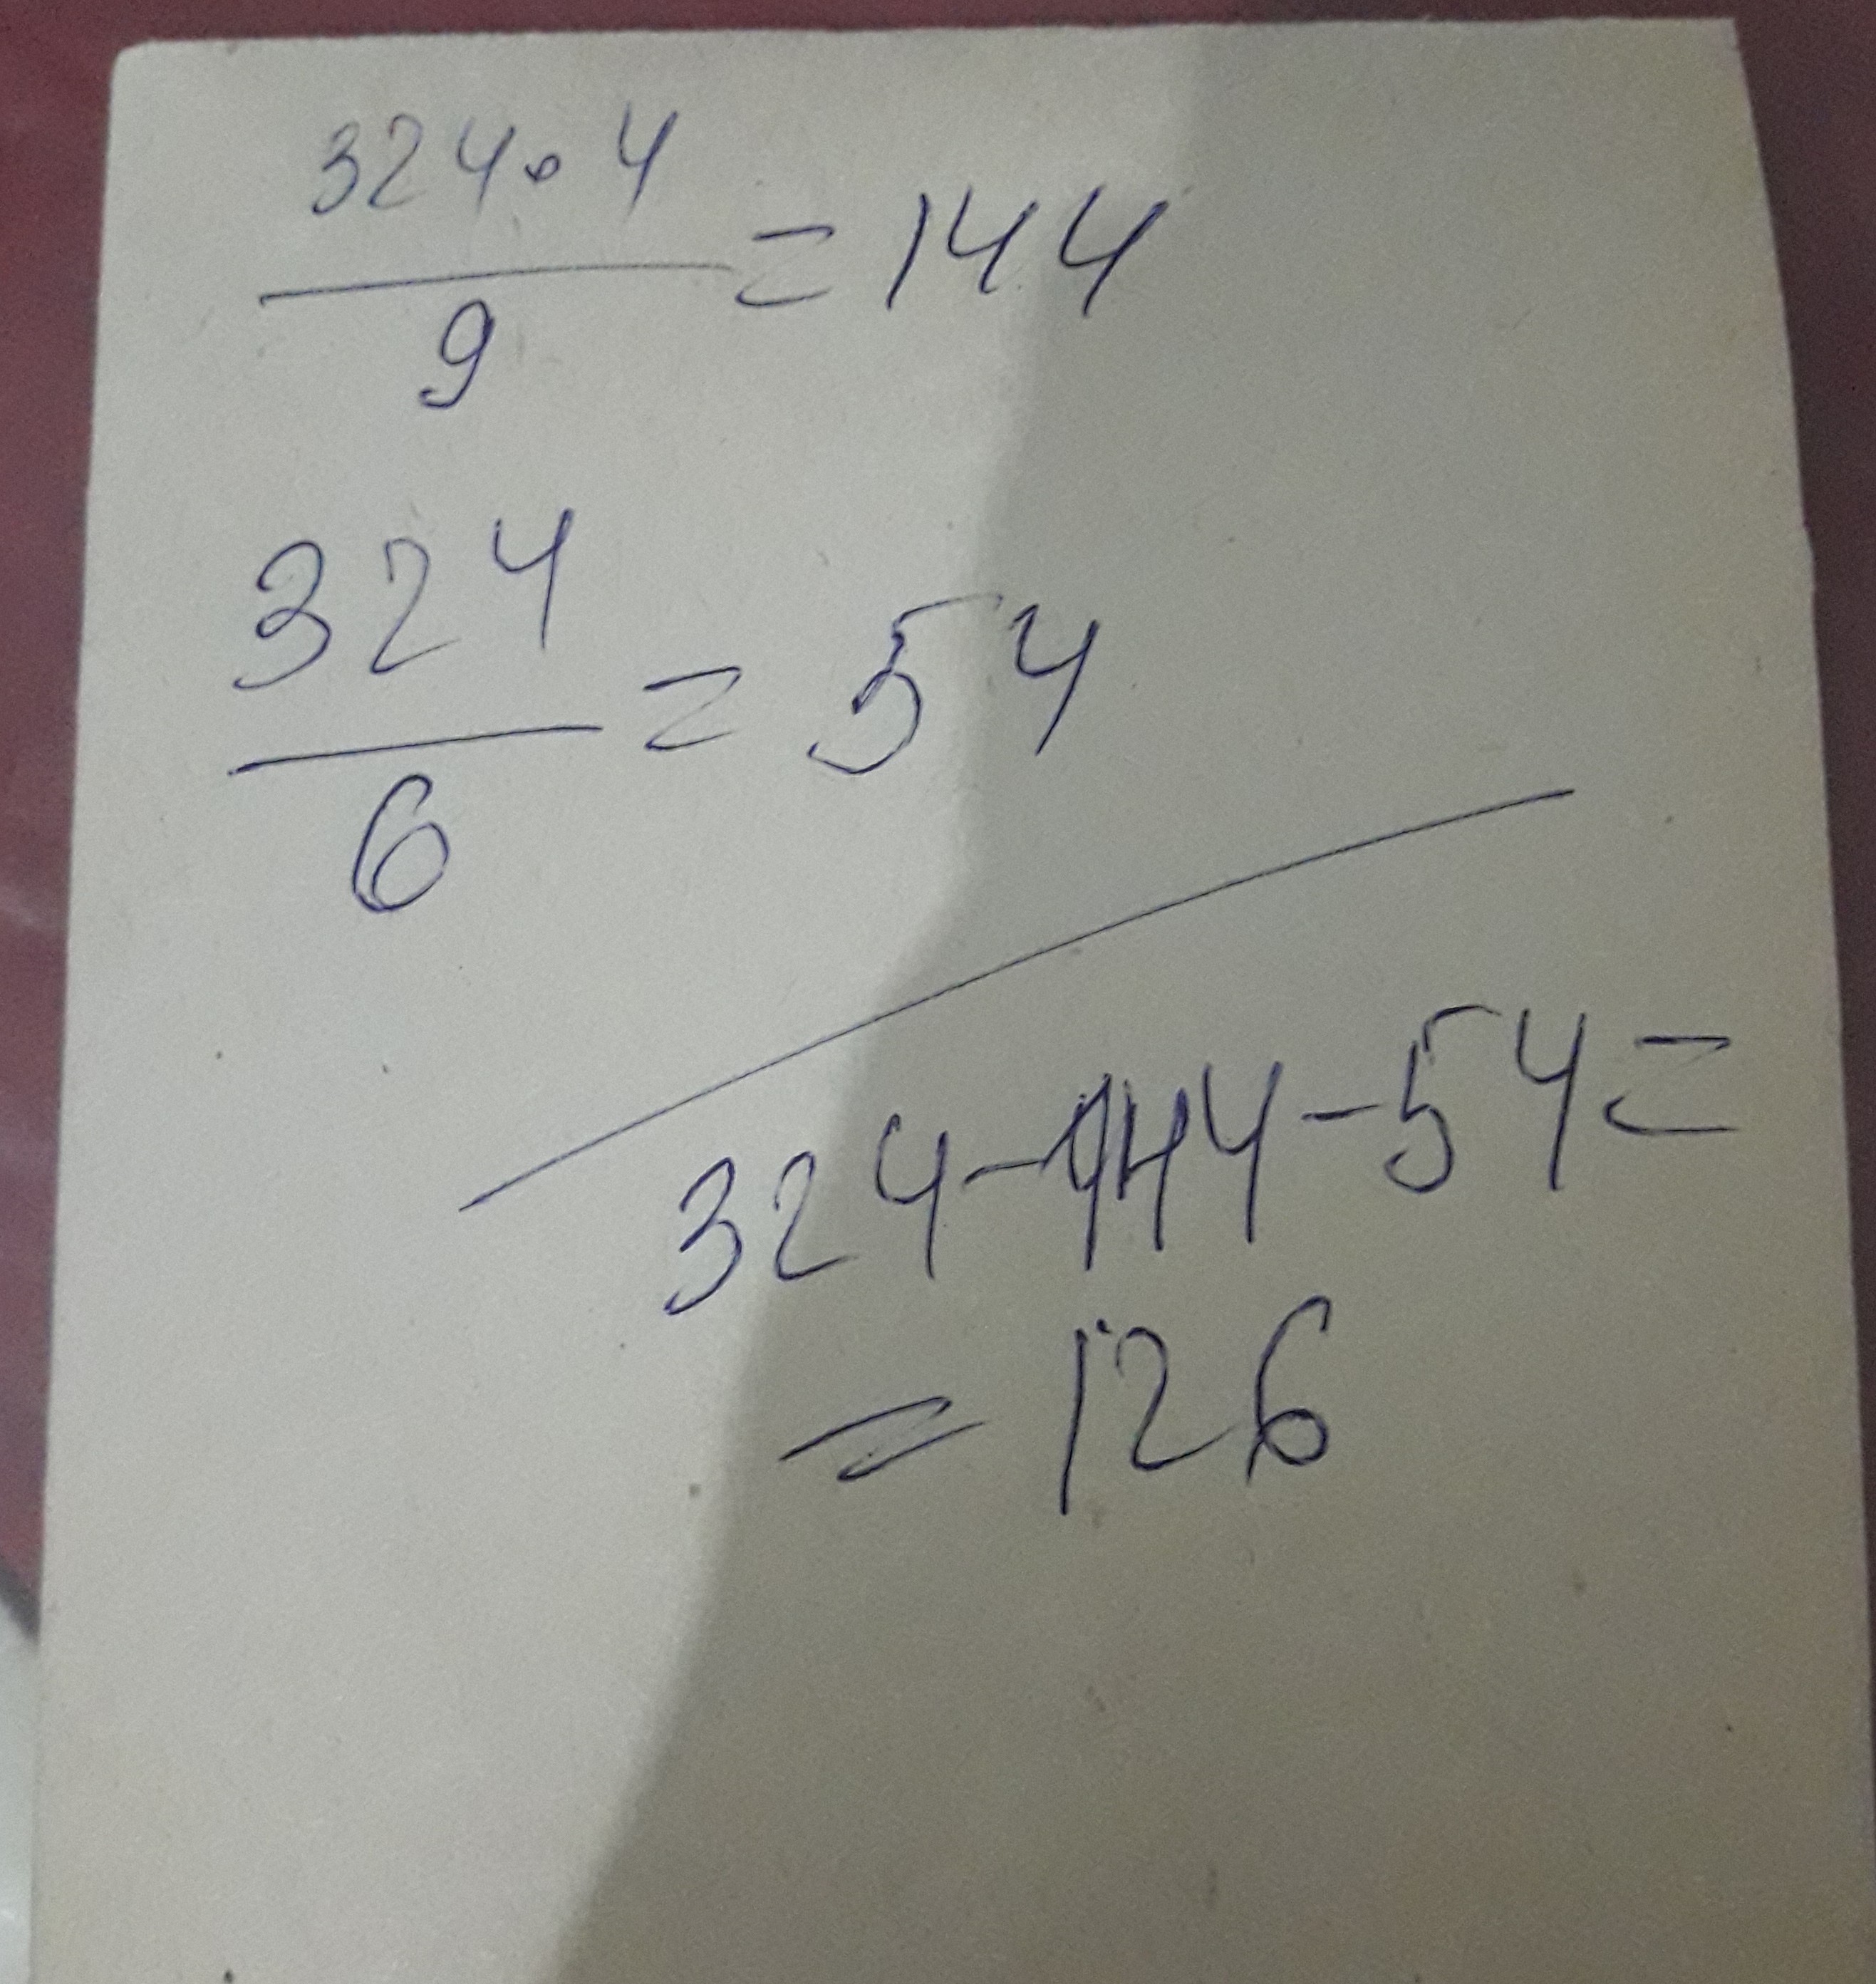 324 · 4
= 144
9
324
= 54
6
324 - 144 - 54 =
= 126